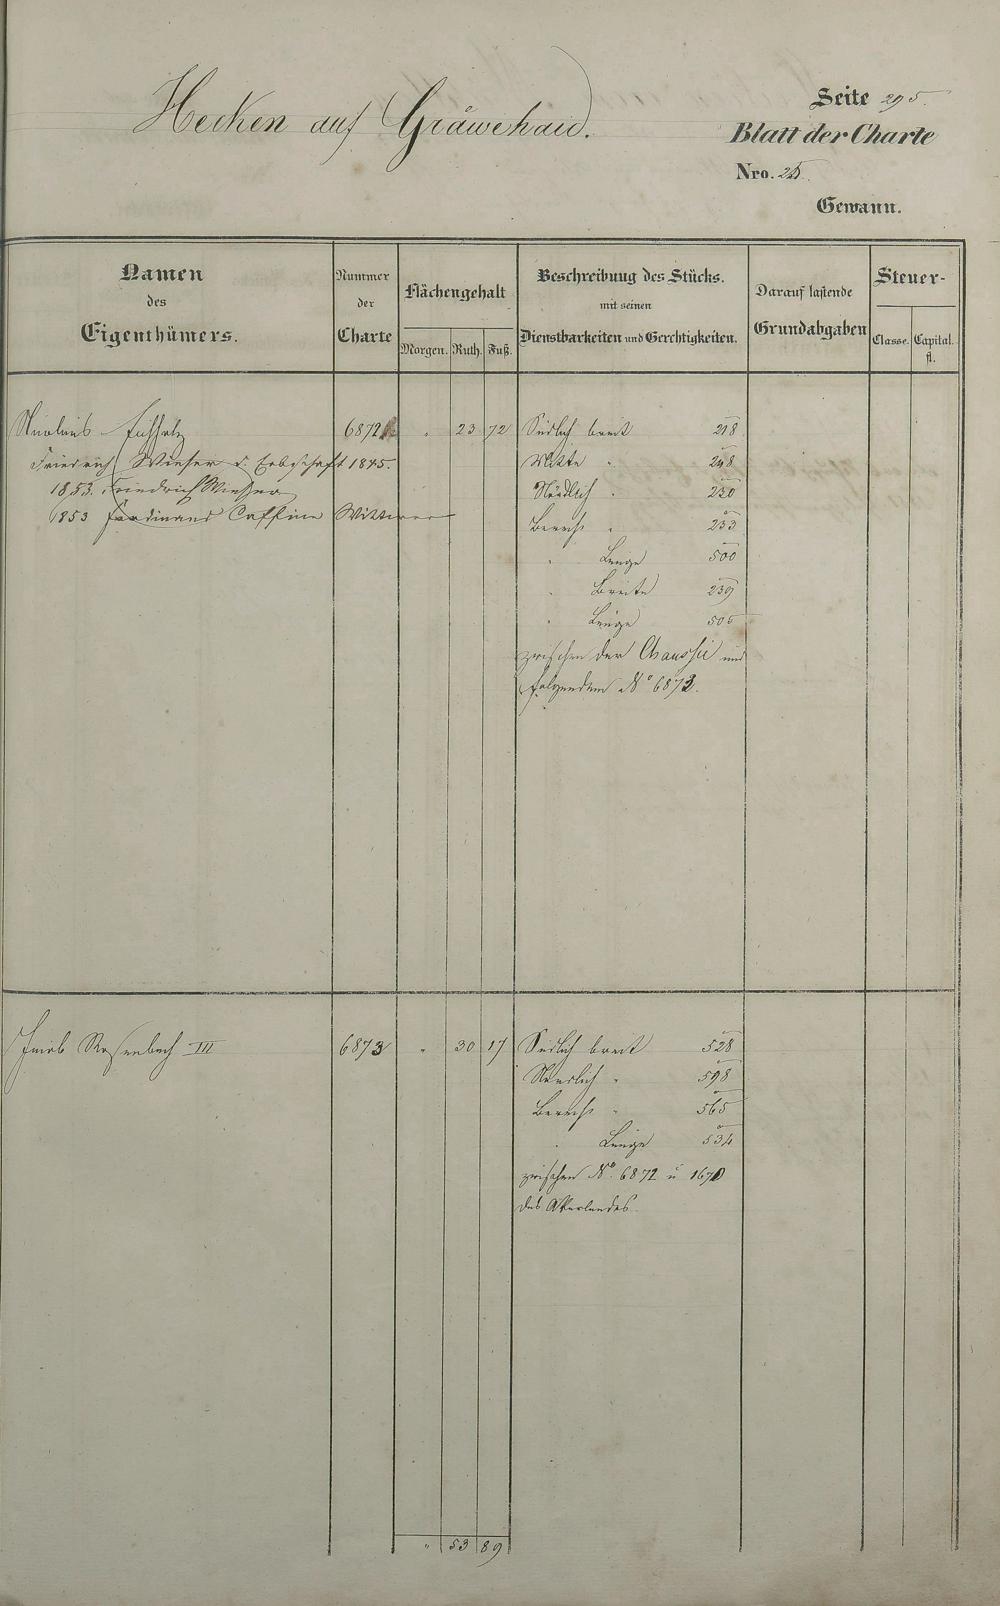 Hecken auf Gräwehaid.
Seite 295.
Blatt der Charte
Nro. 25.
Gewann.
Namen
des
Eigenthümers.
Nummer
der
Charte
Flächengehalt
Morgen. Ruth. Fuß.
Beschreibung des Stücks.
mit seinen
Dienstbarkeiten und Gerechtigkeiten.
Darauf lastende
Grundabgaben
Steuer-
Classe. Capital.
fl.
6872 " 23 72 Südlich breit 218
Friedrich Wieser d. Erbschaft 1845. Mitte " 248
1853. Friedrich Wieser Nördlich " 230
1853 Ferdinand Wittwe " 233
" Länge 500
" Breite 239
" Länge 505
zwischen der Chaussée und
folgendem No 6873.
Jacob Rosenbach III 6873 " 30 17 Südlich breit 528
Nördlich " 598
" 565
" Länge 534
zwischen No. 6872 u 1670
des Ackerlandes.
" 53 89